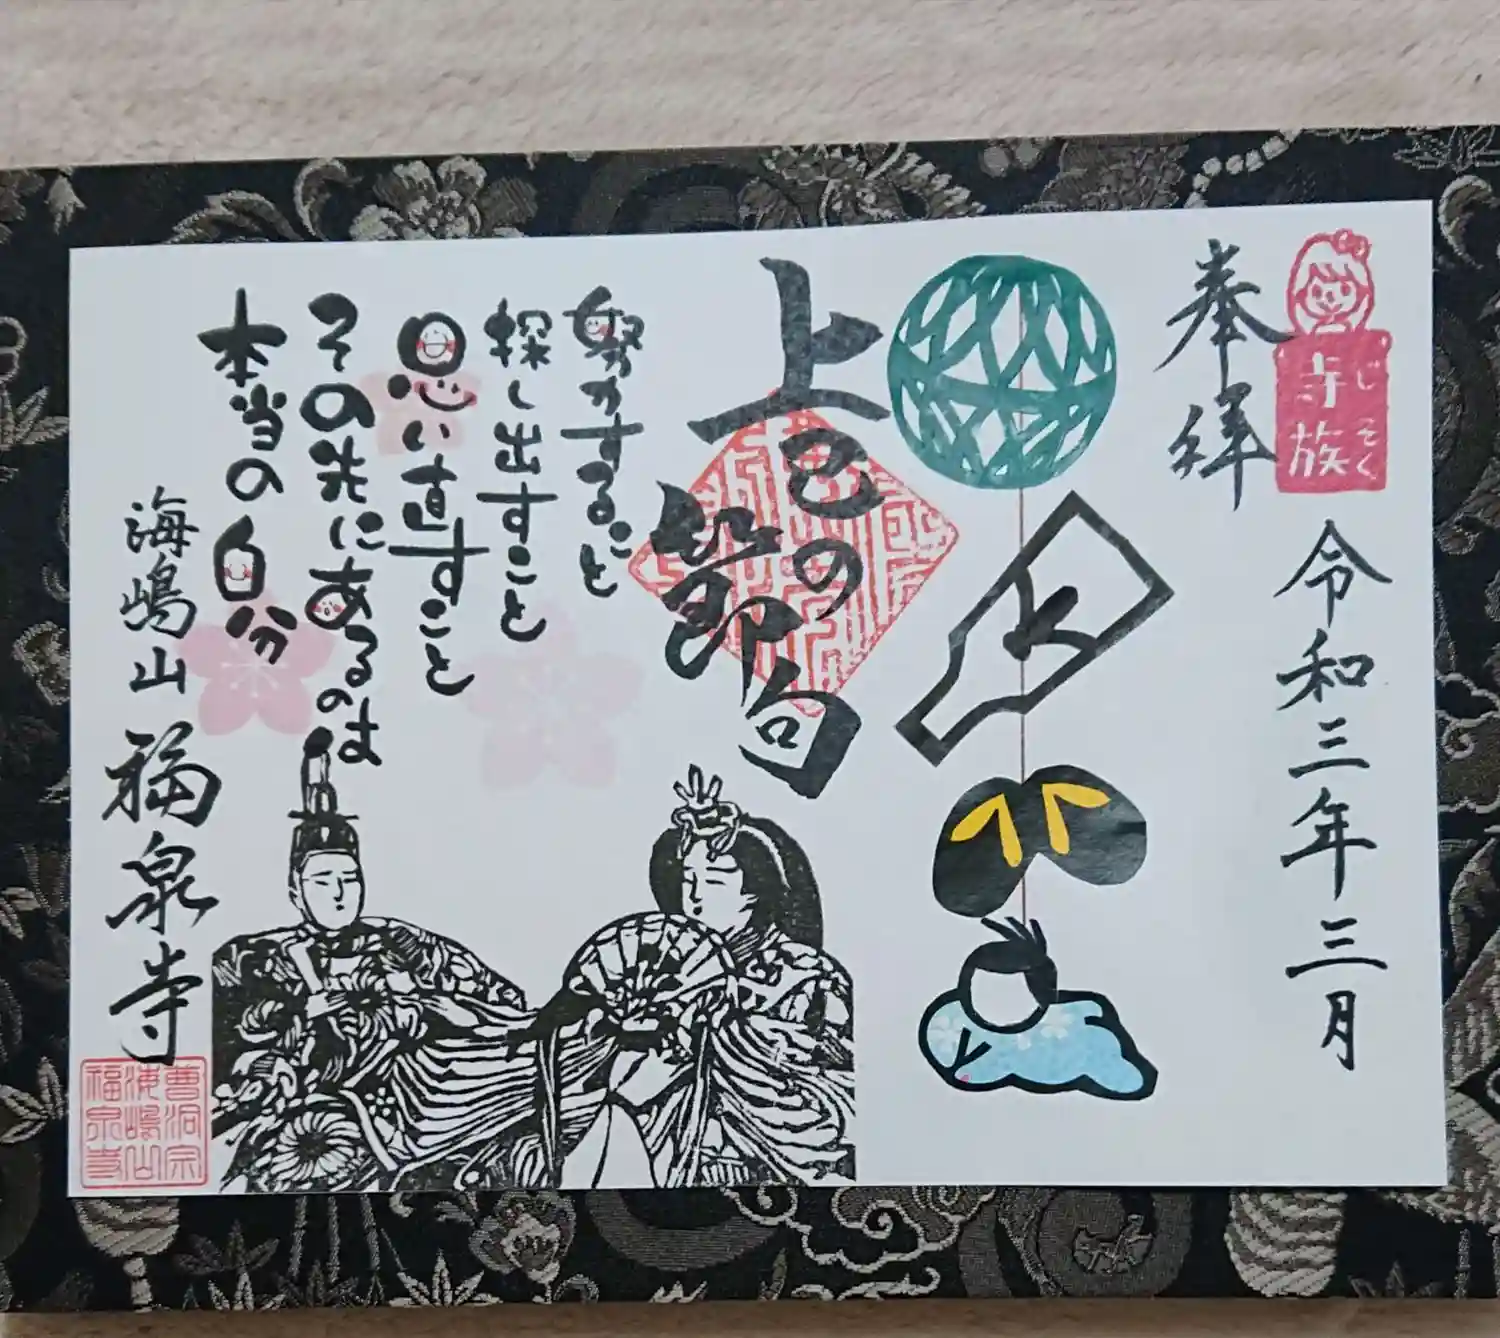 寺族
じぞく
奉拝
令和三年三月
上巳の節句
努力すること
探し出すこと
思い直すこと
その先にあるのは
本当の自分
海嶋山 福泉寺
曹洞宗
海嶋山
福泉寺